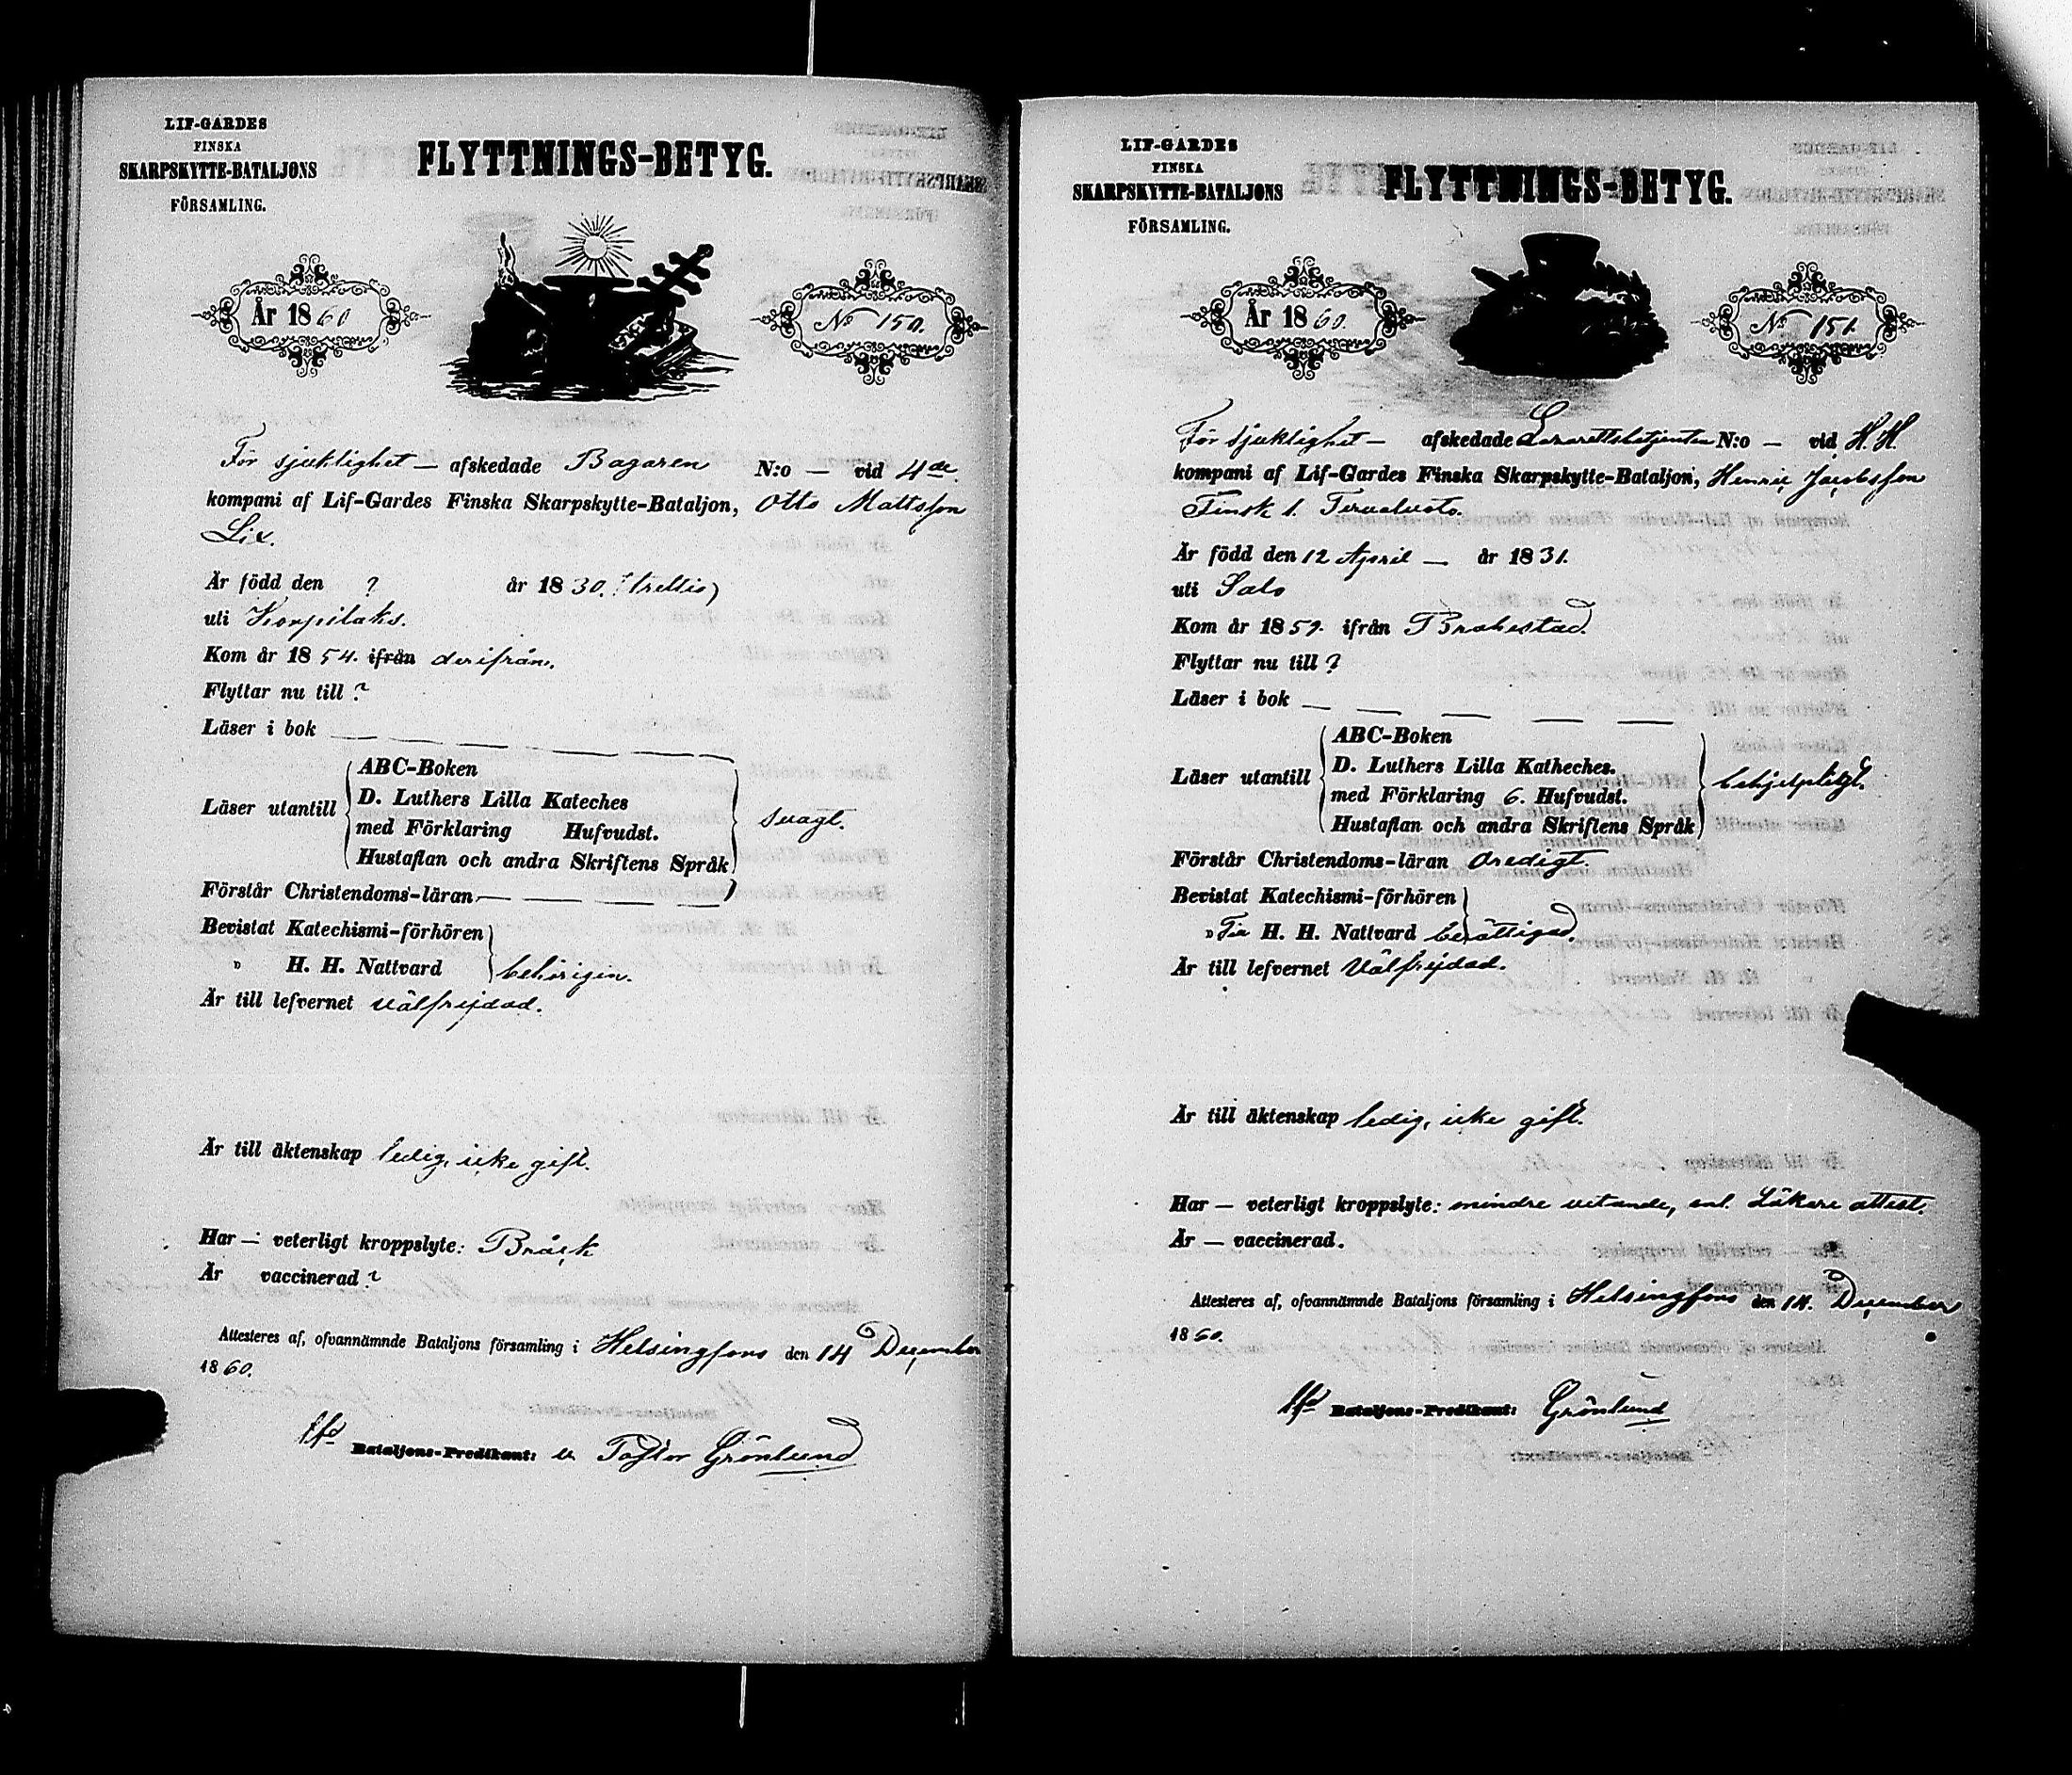 LIF-GARDES
FINSKA
SKARPSKYTTE-BATALJONS
FÖRSAMLING.
FLYTTNINGS-BETYG.
År 1860
No 150.
För sjuklighet — afskedade Bagaren N:o — vid 4de
kompani af Lif-Gardes Finska Skarpskytte-Bataljon, Otto Mattsson
Lix.
Är född den ? år 1830. (trettio)
uti Korpilaks.
Kom år 1854. ifrån derifrån.
Flyttar nu till ?
Läser i bok — — — —
Läser utantill
ABC-Boken
D. Luthers Lilla Kateches
med Förklaring Hufvudst.
Hustaflan och andra Skriftens Språk
svagt.
Förstår Christendoms-läran — — —
Bevistat Katechismi-förhören
" H. H. Nattvard behörigen.
Är till lefvernet välfrejdad.
Är till äktenskap ledig, icke gift.
Har — veterligt kroppslyte: Bråck
Är vaccinerad ?
Attesteres af, ofvannämnde Bataljons församling i Helsingfors den 14 December
1860.
Bataljons-Predikant: Pastor Grönlund
LIF-GARDES
FINSKA
SKARPSKYTTE-BATALJONS
FÖRSAMLING.
FLYTTNINGS-BETYG.
År 1860.
No 151.
För sjuklighet — afskedade Lazarettsbetjenten N:o — vid H. H.
kompani af Lif-Gardes Finska Skarpskytte-Bataljon, Henric Jacobsson
Finsk l.
Är född den 12 April — år 1831.
uti Salo
Kom år 1859. ifrån Brahestad.
Flyttar nu till ?
Läser i bok — — — — —
Läser utantill
ABC-Boken
D. Luthers Lilla Katheches.
med Förklaring 6. Hufvudst.
Hustaflan och andra Skriftens Språk
behjelpligt.
Förstår Christendoms-läran oredigt.
Bevistat Katechismi-förhören
" Till H. H. Nattvard berättigad.
Är till lefvernet Välfrejdad.
Är till äktenskap ledig, icke gift.
Har — veterligt kroppslyte: mindre vetande, enl. Läkare attest.
Är — vaccinerad.
Attesteres af, ofvannämnde Bataljons församling i Helsingfors den 14. December
1860.
Bataljons-Predikant: Grönlund